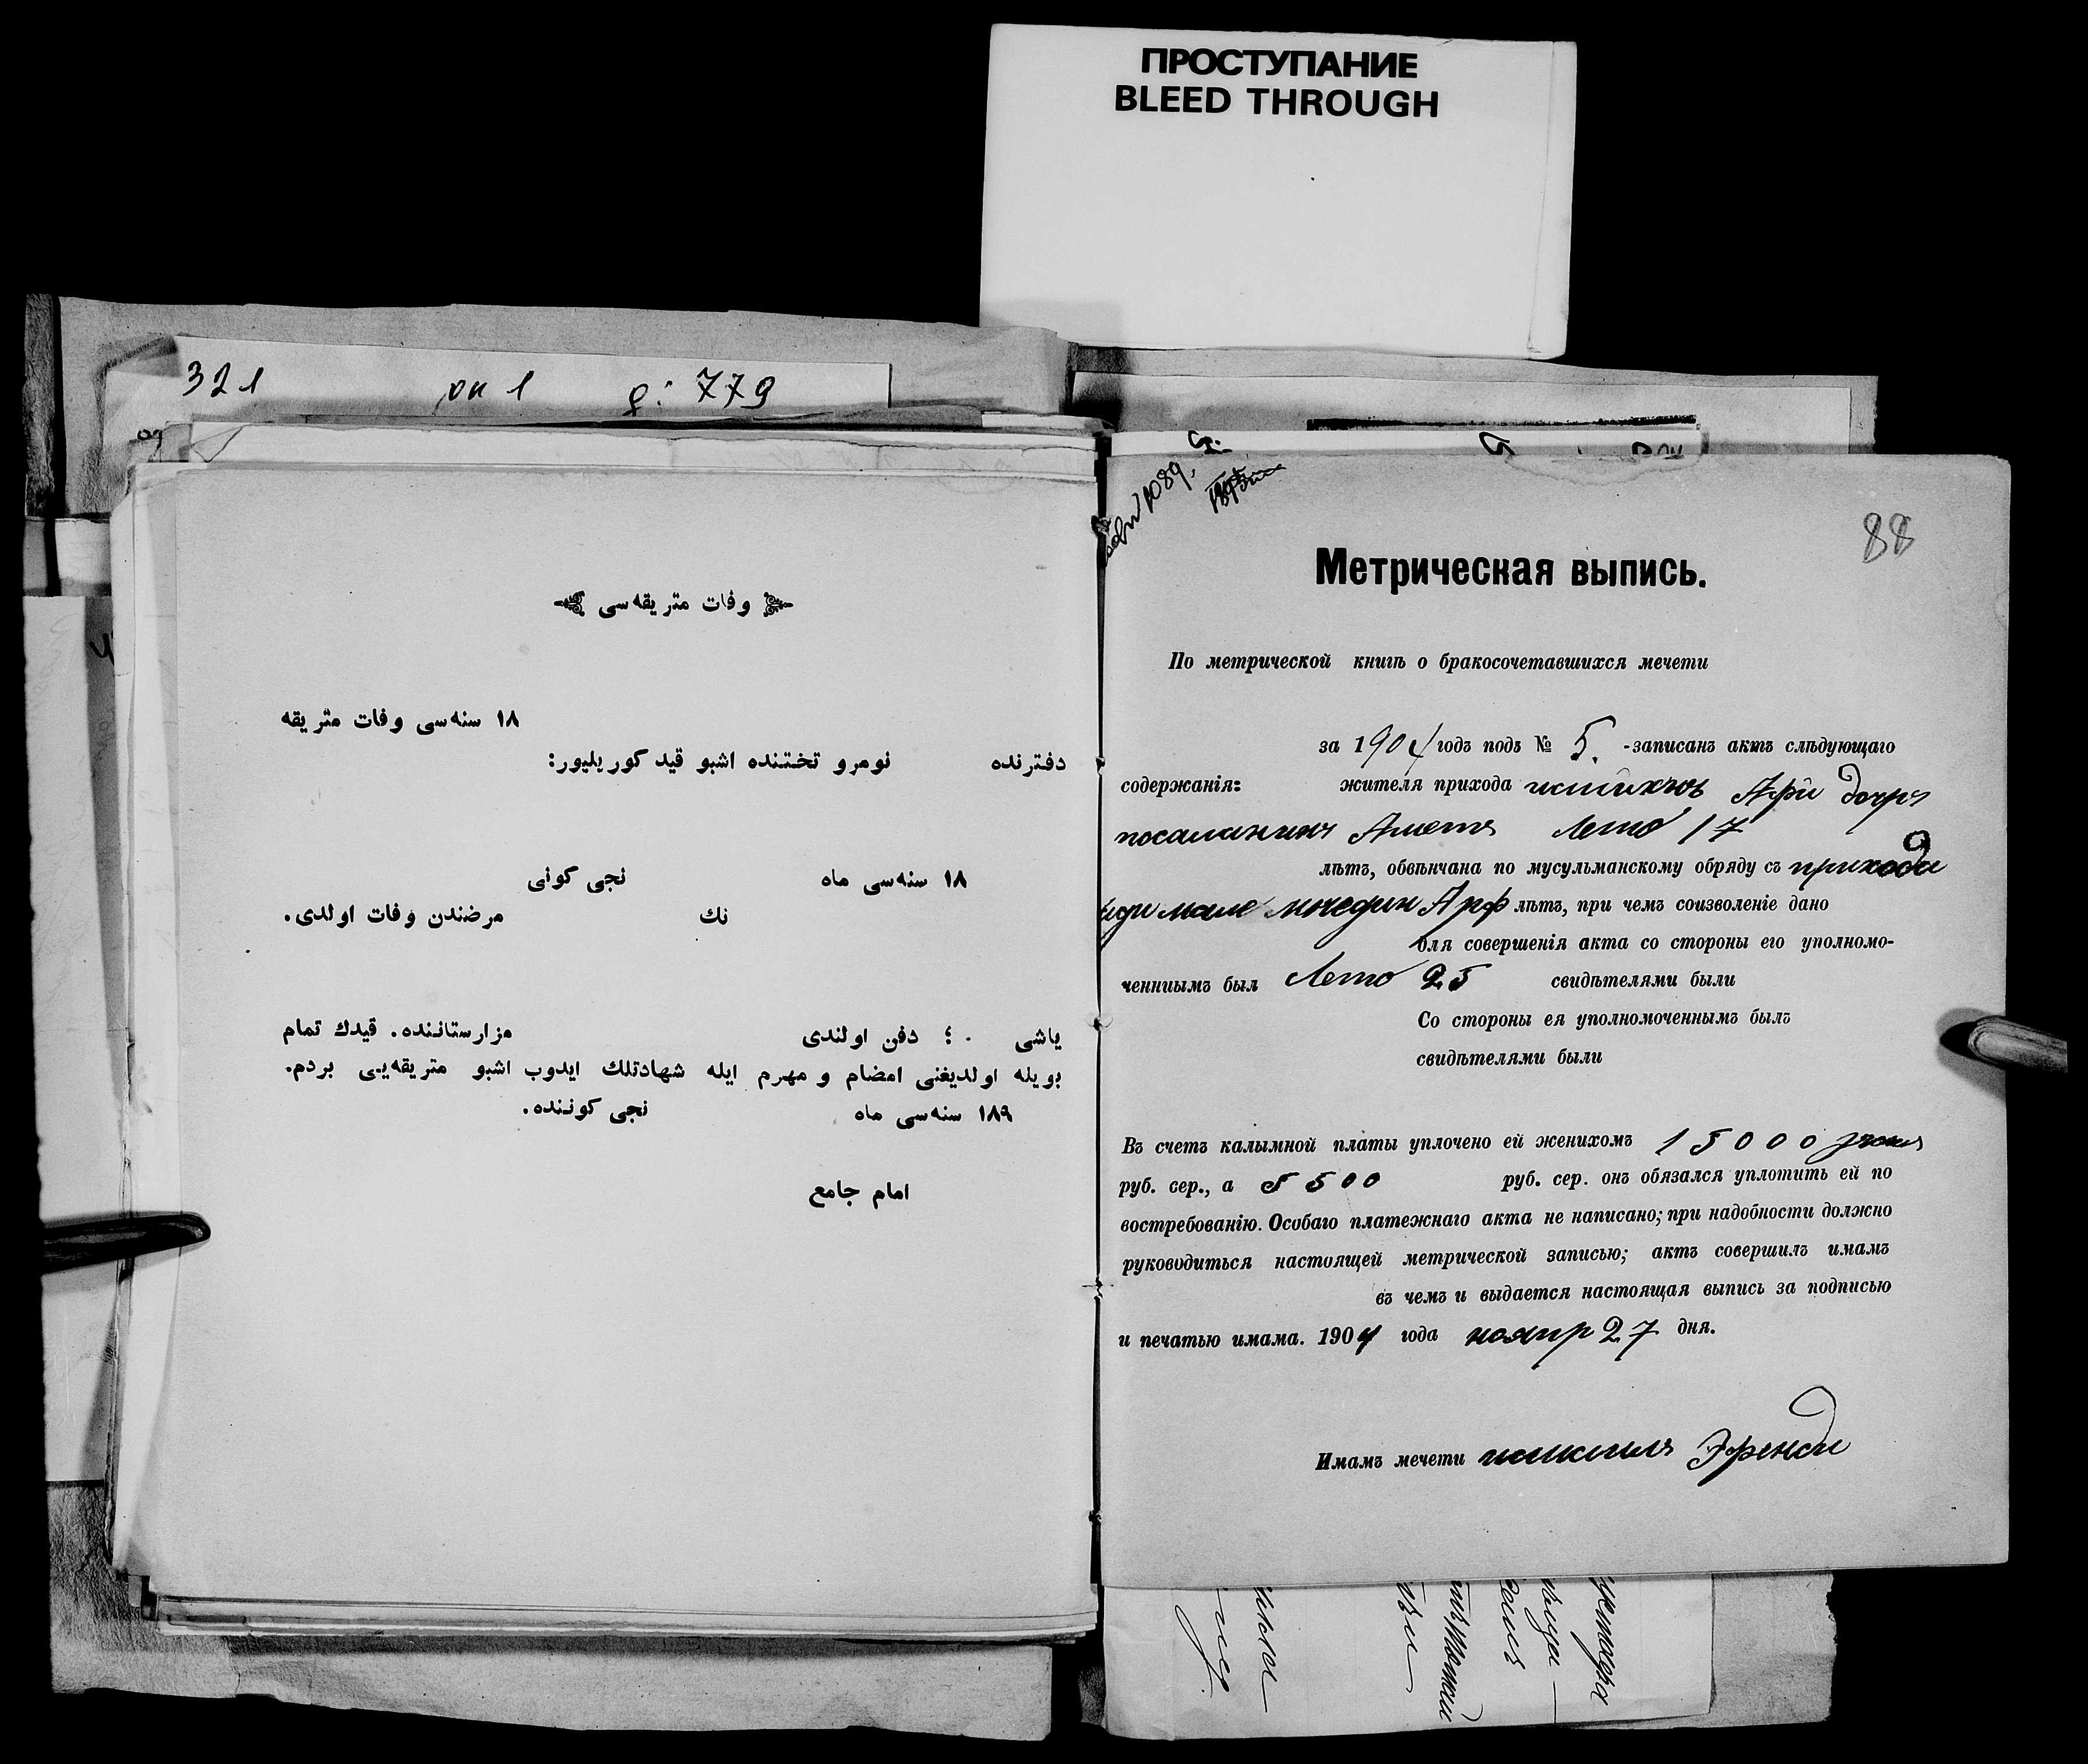 ПРОСТУПАНИЕ
BLEED THROUGH
321 оп 1 д: 779
وفات متريقه‌سی
١٨ سنه‌سی وفات متريقه
دفترنده نومرو تختنده اشبو قيد كوريليور:
١٨ سنه‌سی ماه نجی كونی
نك مرضندن وفات اولدی.
ياشی . ؛ دفن اولندی مزارستاننده. قيدك تمام
بويله اولديغنی امضام و مهرم ايله شهادتلك ايدوب اشبو متريقه‌يی بردم.
١٨٩ سنه‌سی ماه نجی كوننده.
امام جامع
88
Метрическая выпись.
По метрической книгѣ о бракосочетавшихся мечети
за 1904 годъ подъ № 5. -записанъ актъ слѣдующаго
содержанія: жителя прихода Афи дочръ
Аметъ Лето 17
лѣтъ, обвѣнчана по мусульманскому обряду съ прихода
Арф лѣтъ, при чемъ соизволеніе дано
для совершенія акта со стороны его уполномо-
ченнымъ был Лето 25 свидѣтелями были
Со стороны ея уполномоченнымъ былъ
свидѣтелями были
Въ счетъ калымной платы уплочено ей женихомъ 15000
руб. сер., а 5500 руб. сер. онъ обязался уплотить ей по
востребованію. Особаго платежнаго акта не написано; при надобности должно
руководиться настоящей метрической записью; актъ совершилъ имамъ
въ чемъ и выдается настоящая выпись за подписью
и печатью имама. 1904 года нояпр 27 дня.
Имамъ мечети Эфенди